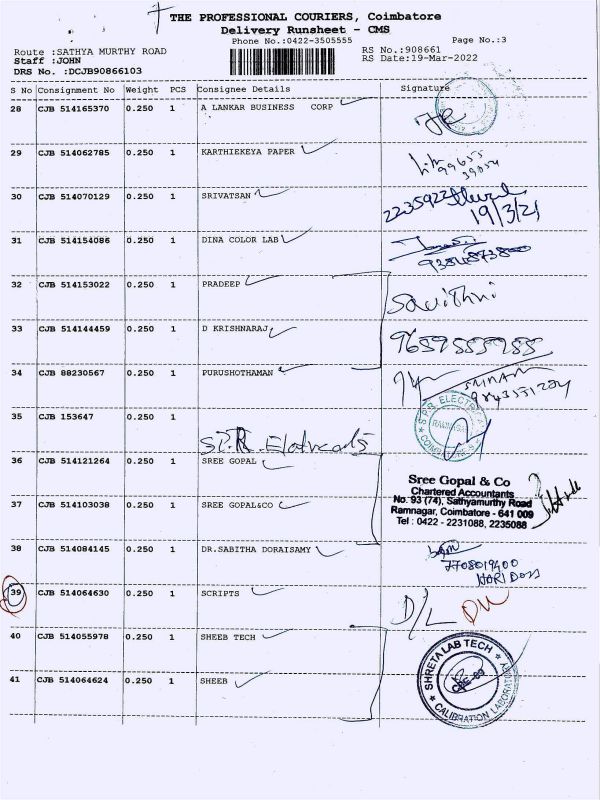 THE PROFESSIONAL COURIERS, Coimbatore
Delivery Runsheet - CMS
Phone No.:0422-3505555 Page No.:3
Route :SATHYA MURTHY ROAD RS No.:908661
Staff :JOHN RS Date:19-Mar-2022
DRS No. :DCJB90866103
S No Consignment No Weight PCS Consignee Details Signature
28 CJB 514165370 0.250 1 A LANKAR BUSINESS CORP
29 CJB 514062785 0.250 1 KARTHIEKEYA PAPER 99655
39054
30 CJB 514070129 0.250 1 SRIVATSAN 2235922
19/3/21
31 CJB 514154086 0.250 1 DINA COLOR LAB
32 CJB 514153022 0.250 1 PRADEEP Savithri
33 CJB 514144459 0.250 1 D KRISHNARAJ 9659555955
34 CJB 88230567 0.250 1 PURUSHOTHAMAN
35 CJB 153647 0.250 1 S.P.R. Electricals
S.P.R. ELECTRICALS
36 CJB 514121264 0.250 1 SREE GOPAL
Sree Gopal & Co
Chartered Accountants
No. 93 (74), Sathyamurthy Road
Ramnagar, Coimbatore - 641 009
Tel : 0422 - 2231088, 2235088
37 CJB 514103038 0.250 1 SREE GOPAL&CO
38 CJB 514084145 0.250 1 DR.SABITHA DORAISAMY
7708019400
HARI DOSS
39 CJB 514064630 0.250 1 SCRIPTS D/L DU
40 CJB 514055978 0.250 1 SHEEB TECH
41 CJB 514064624 0.250 1 SHEEB
SHRETA LAB TECH
CALIBRATION LABORATORY
CBE-09